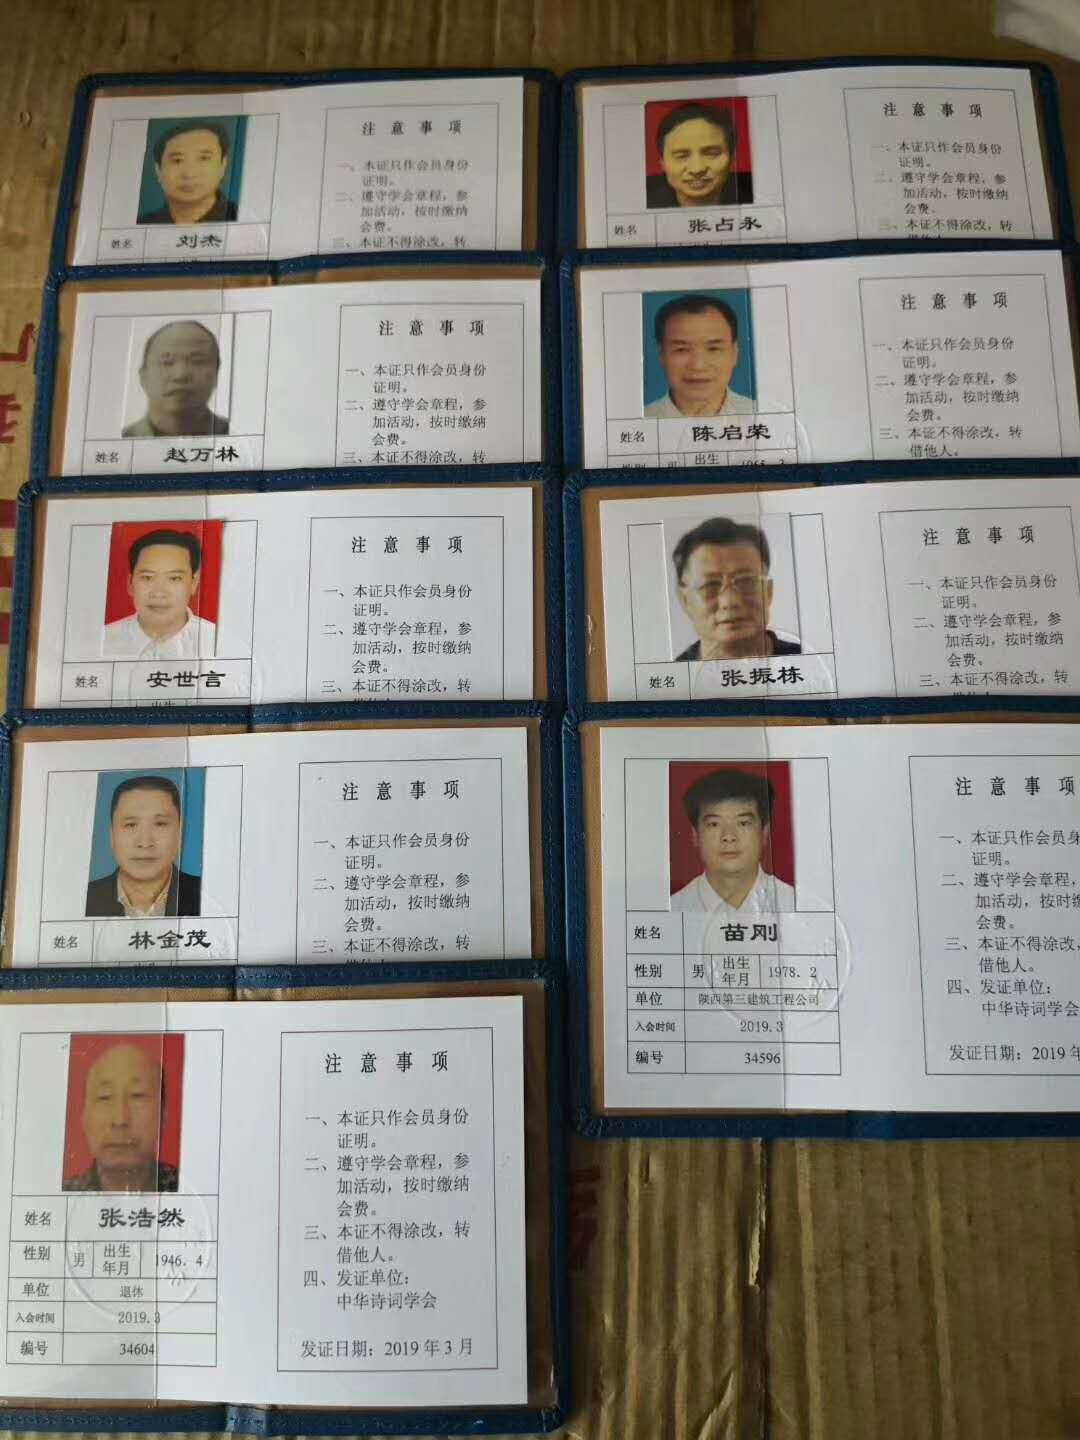 注 意 事 项
一、本证只作会员身份
证明。
二、遵守学会章程，参
加活动，按时缴纳
会费。
三、本证不得涂改，转
姓名 刘杰
出生
注 意 事 项
一、本证只作会员身份
证明。
二、遵守学会章程，参
加活动，按时缴纳
会费。
三、本证不得涂改，转
借他人。
姓名 张占永
注 意 事 项
一、本证只作会员身份
证明。
二、遵守学会章程，参
加活动，按时缴纳
会费。
三、本证不得涂改，转
姓名 赵万林
注 意 事 项
一、本证只作会员身份
证明。
二、遵守学会章程，参
加活动，按时缴纳
会费。
三、本证不得涂改，转
借他人。
姓名 陈启荣
性别 男 出生
注 意 事 项
一、本证只作会员身份
证明。
二、遵守学会章程，参
加活动，按时缴纳
会费。
三、本证不得涂改，转
姓名 安世言
出生
注 意 事 项
一、本证只作会员身份
证明。
二、遵守学会章程，参
加活动，按时缴纳
会费。
三、本证不得涂改，转
姓名 张振栋
注 意 事 项
一、本证只作会员身份
证明。
二、遵守学会章程，参
加活动，按时缴纳
会费。
三、本证不得涂改，转
姓名 林金茂
注 意 事 项
一、本证只作会员身
证明。
二、遵守学会章程，
加活动，按时缴
会费。
三、本证不得涂改，
借他人。
四、发证单位：
中华诗词学会
发证日期：2019年
姓名 苗刚
性别 男 出生年月 1978.2
单位 陕西第三建筑工程公司
入会时间 2019.3
编号 34596
注 意 事 项
一、本证只作会员身份
证明。
二、遵守学会章程，参
加活动，按时缴纳
会费。
三、本证不得涂改，转
借他人。
四、发证单位：
中华诗词学会
发证日期：2019年3月
姓名 张浩然
性别 男 出生年月 1946.4
单位 退休
入会时间 2019.3
编号 34604